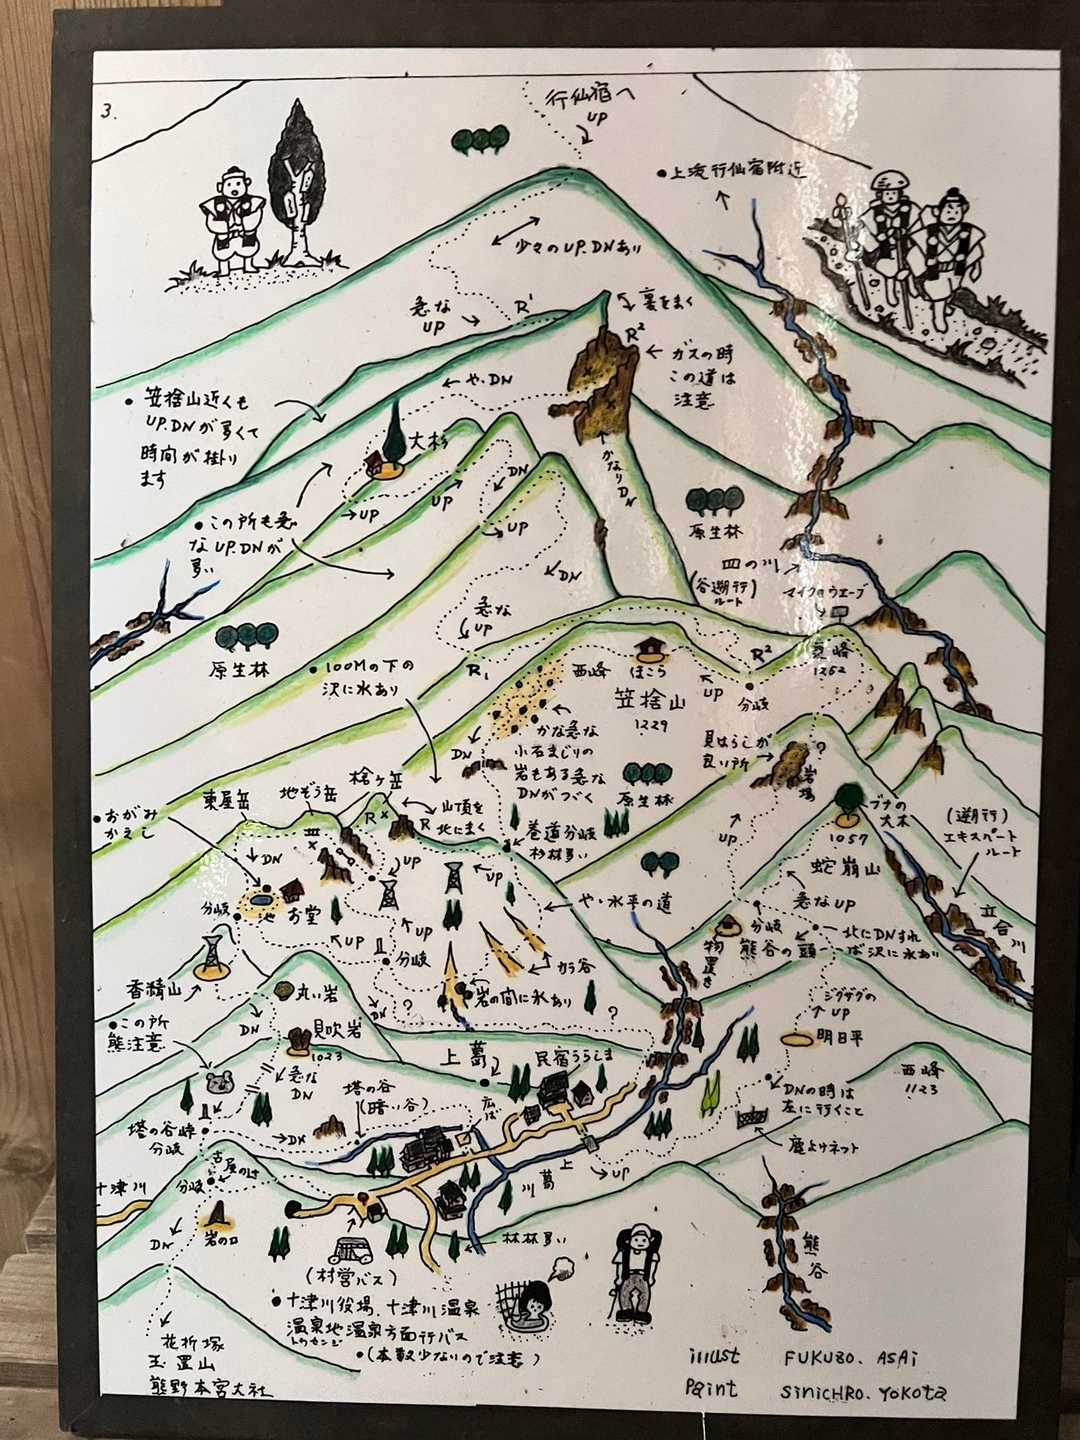 3.
行仙宿へ
UP
上流行仙宿附近
少々のUP.DNあり
急な
UP
R¹
裏をまく
R²
ガスの時
この道は
注意
や・DN
笠捨山近くも
UP.DNが多くて
時間が掛り
ます
大杉
DN
かなりDN
UP
UP
UP
この所も急
なUP.DNが
多い
DN
原生林
四の川
(谷遡行)
ルート
マイクロウエーブ
急な
UP
原生林
100Mの下の
沢に水あり
R₁
西峰
ほこら
R²
UP
分岐
1262
笠捨山
1229
かな急な
小石まじりの
岩もある急な
DNがつづく
DN
見はらしが
良い所
?
岩場
原生林
槍ヶ岳
地ぞう岳
東屋岳
おがみ
かえし
R
R
山頂を
北にまく
巻道分岐
杉林多い
ブナの
大木
1057
(遡行)
エキスパート
ルート
UP
DN
UP
UP
蛇崩山
急なUP
や・水平の道
分岐
池
お堂
UP
UP
分岐
分岐
熊谷の頭
北にDNすれ
ば沢に水あり
物置き
立合川
カラ谷
香精山
丸い岩
岩の間に水あり
DN
?
?
ジグザグの
UP
DN
この所
熊注意
貝吹岩
1023
上葛
民宿うらしま
明日平
西峰
1123
急な
DN
塔の谷
(暗い谷)
広ば
DNの時は
左に行くこと
塔の谷峠
分岐
DN
鹿よけネット
古屋の辻
分岐
上
葛
川
UP
十津川
岩の口
DN
(村営バス)
熊谷
十津川役場、十津川温泉
温泉地温泉方面行バス
トウセンジ
(本数少ないので注意)
花折塚
玉置山
熊野本宮大社
illust FUKUZO. ASAi
Paint SiNiCHRO. YOKOta